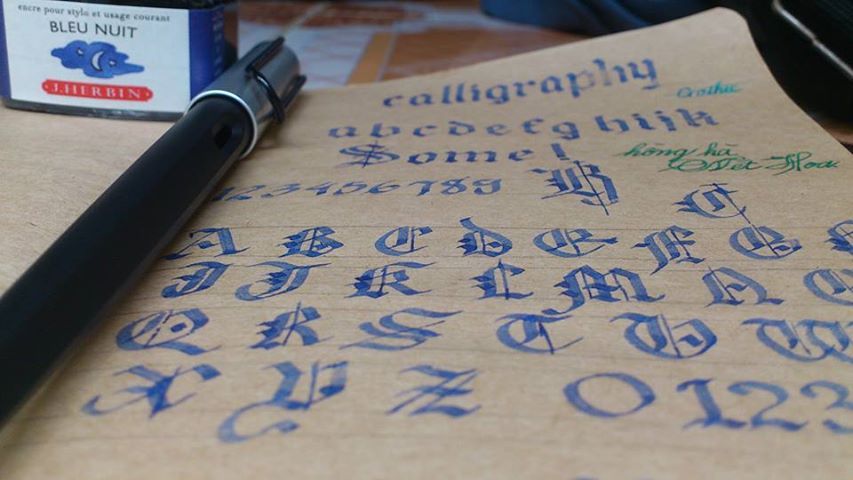 encre pour stylo et usage courant
BLEU NUIT
J.HERBIN
calligraphy
Gothic
abcdefghijk
Some!
hồng hà
Nét Hoa
123456789
B
C
A B C D E F G
I J K L M N O
Q R S T U V
X Y Z 0 1 2 3